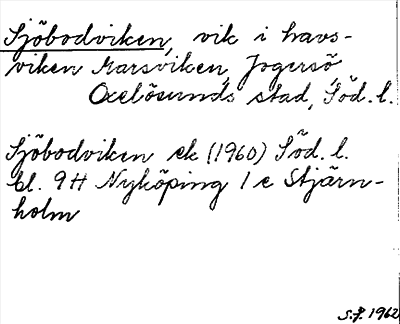 Sjöbodviken, vik i havs-
viken Marsviken, Jogersö,
Oxelösunds stad, Söd. l.
Sjöbodviken ek (1960) Söd. l.
bl. 9H Nyköping 1 e Stjärn-
holm
S.F. 1962